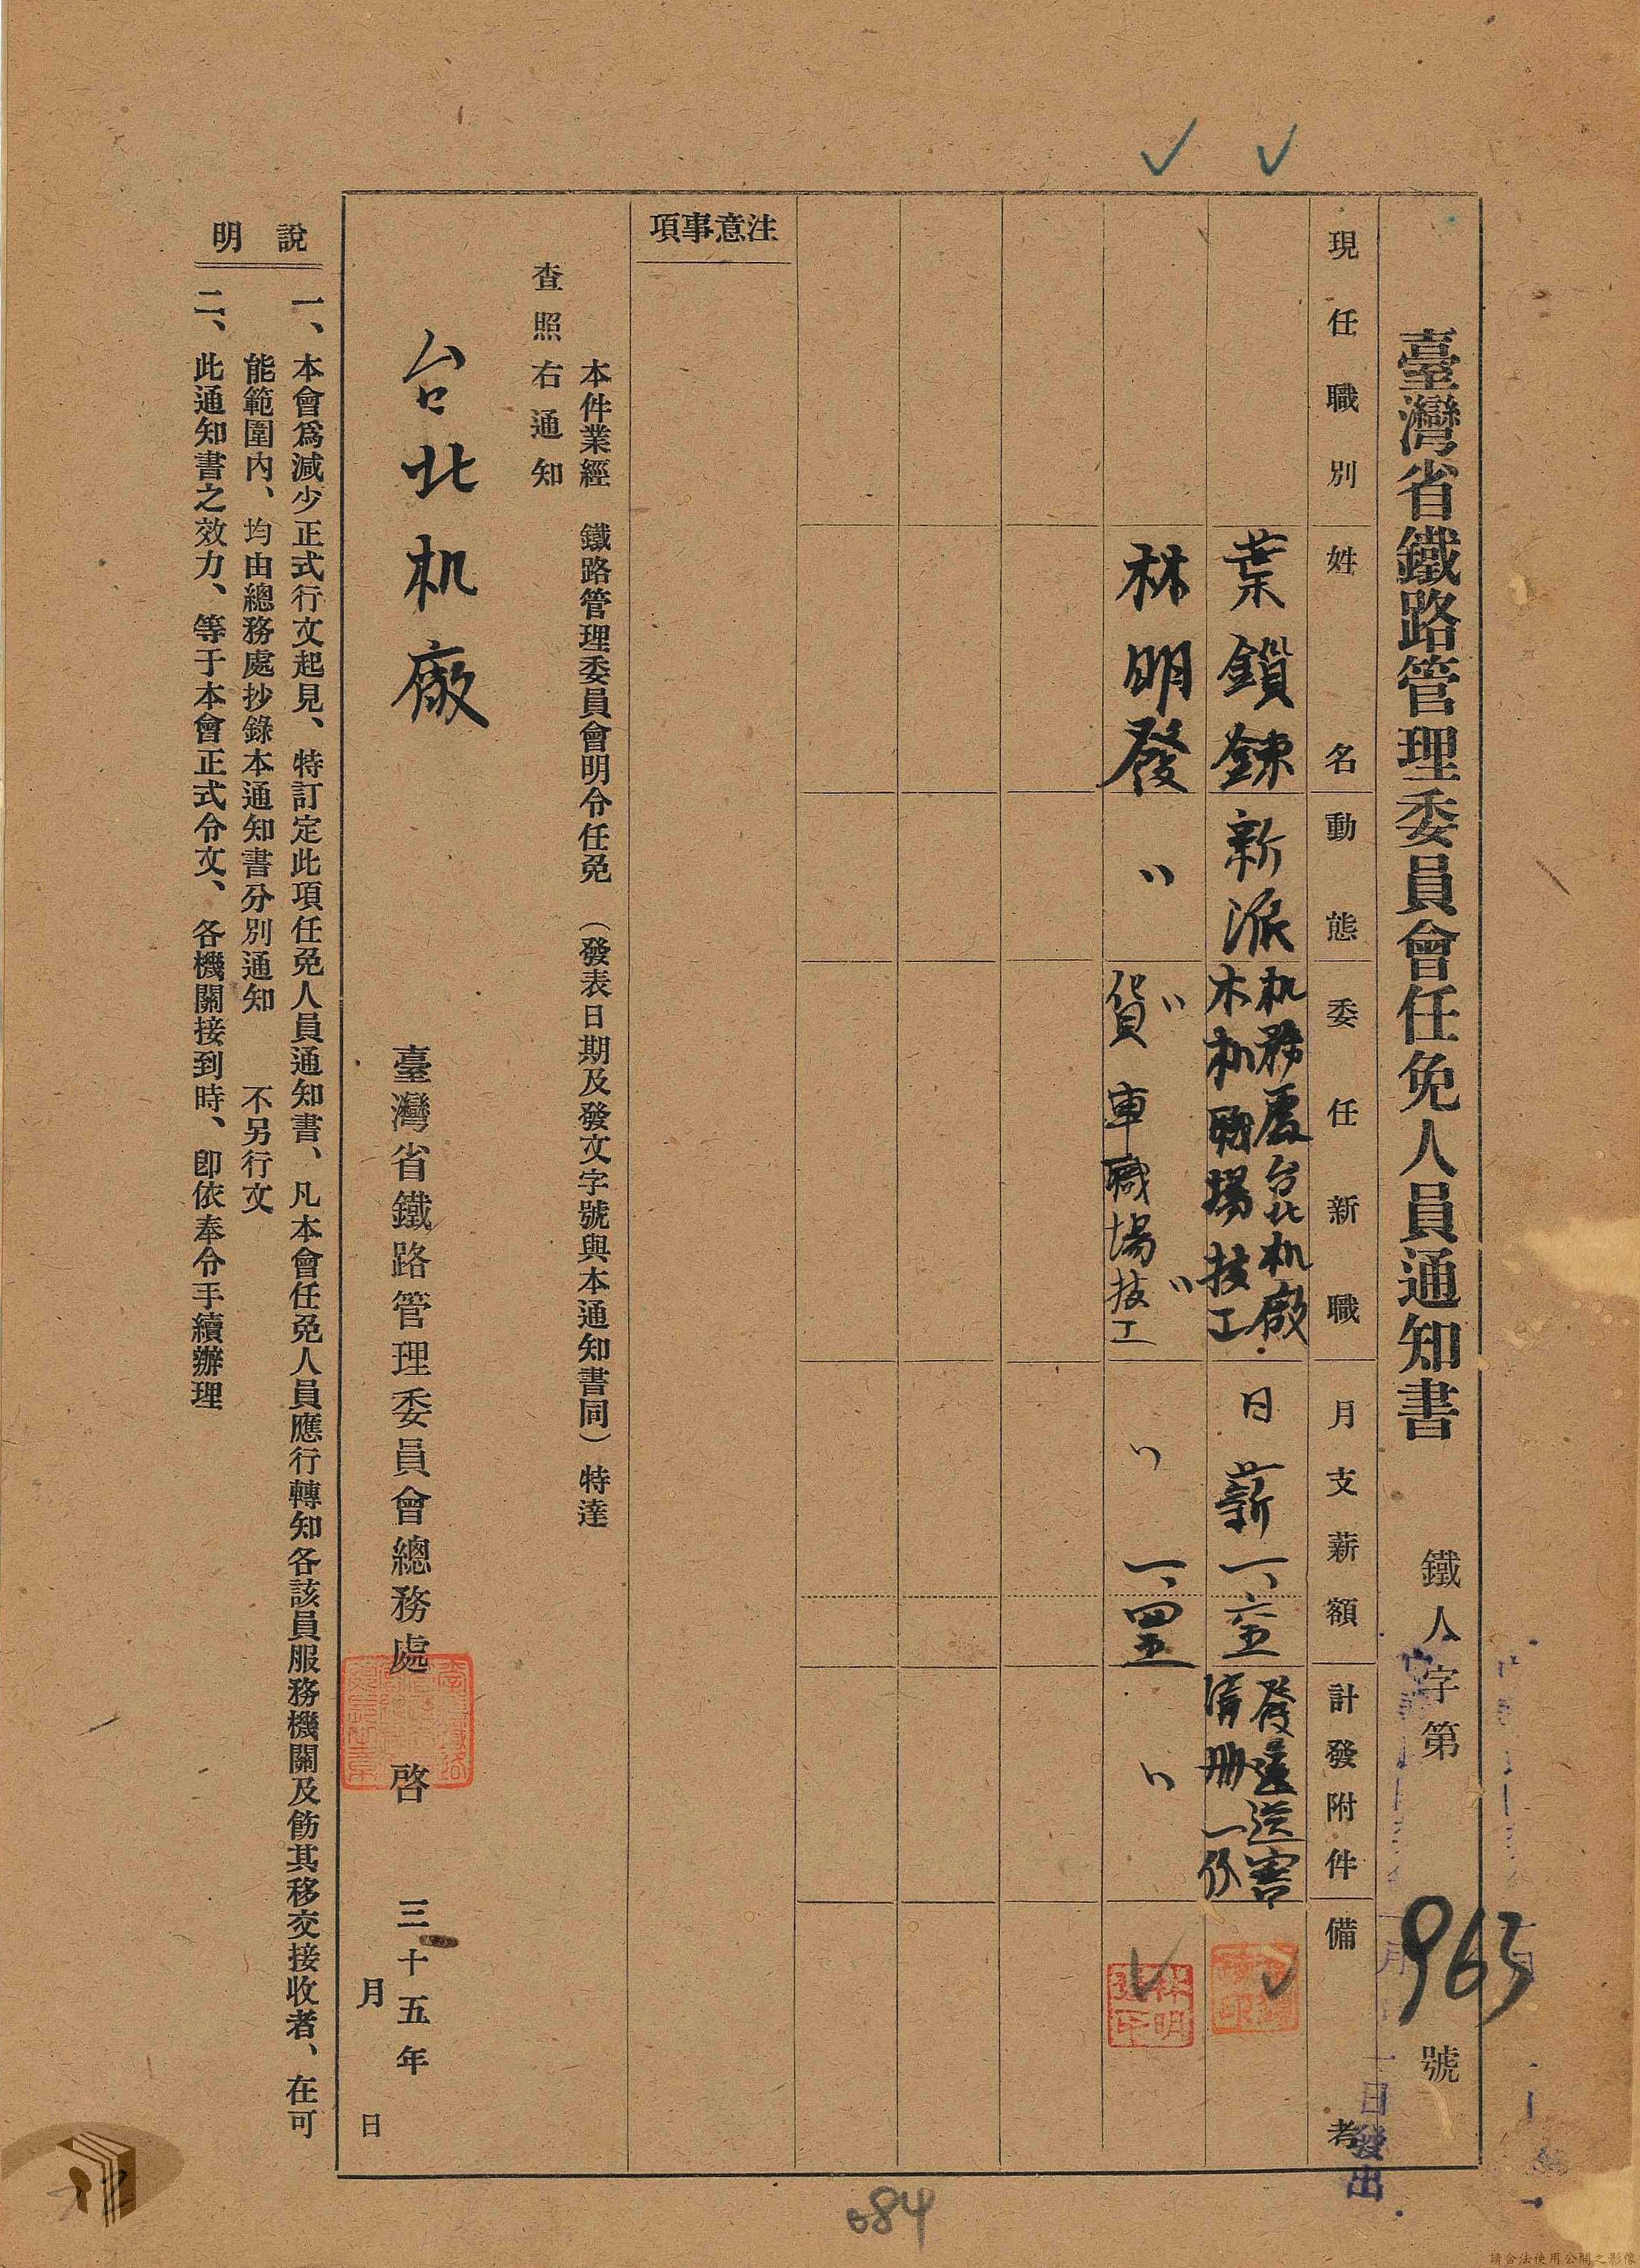 臺灣省鐵路管理委員會任免人員通知書 鐵人字第963號
一日發出
現任職別 姓名 動態 委任新職 月支薪額 計發附件 備考
葉鎖鍊 新派 机務處台北机廠木机職場技工 日薪一、六五 發還送審清册一份
林明發 〃 〃貨車職場〃技工 〃一、四五 〃
林明發印
注意事項
本件業經 鐵路管理委員會明令任免 (發表日期及發文字號與本通知書同) 特達
查照右通知
台北机廠
臺灣省鐵路管理委員會總務處 啓 三十五年
月 日
說明
一、本會爲減少正式行文起見、特訂定此項任免人員通知書、凡本會任免人員應行轉知各該員服務機關及飭其移交接收者、在可
能範圍內、均由總務處抄錄本通知書分別通知 不另行文
二、此通知書之效力、等于本會正式令文、各機關接到時、卽依奉令手續辦理
084
請合法使用公開之影像